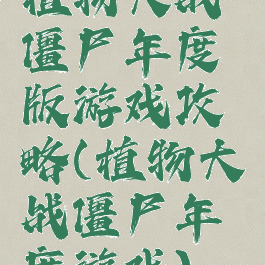 植物大战
僵尸年度
版游戏攻
略(植物大
战僵尸年
度游戏)